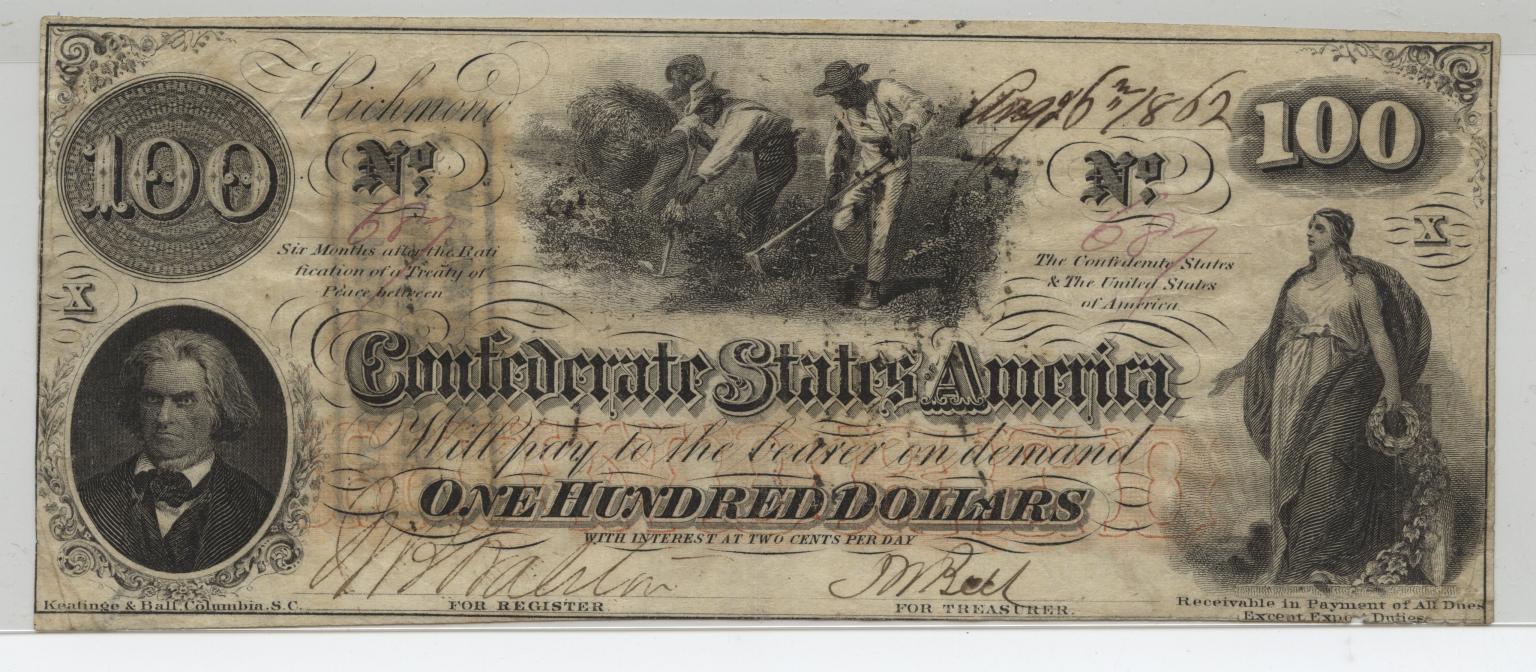 Richmond
Aug 26th 1862
100
100
No.
No.
687
687
Six Months after the Rati
fication of a Treaty of
Peace between
The Confederate States
& The United States
of America.
X
X
Confederate States of America
Will pay to the bearer on demand
ONE HUNDRED DOLLARS
WITH INTEREST AT TWO CENTS PER DAY
Keatinge & Ball, Columbia, S.C.
FOR REGISTER
FOR TREASURER.
Receivable in Payment of All Dues
Except Export Duties